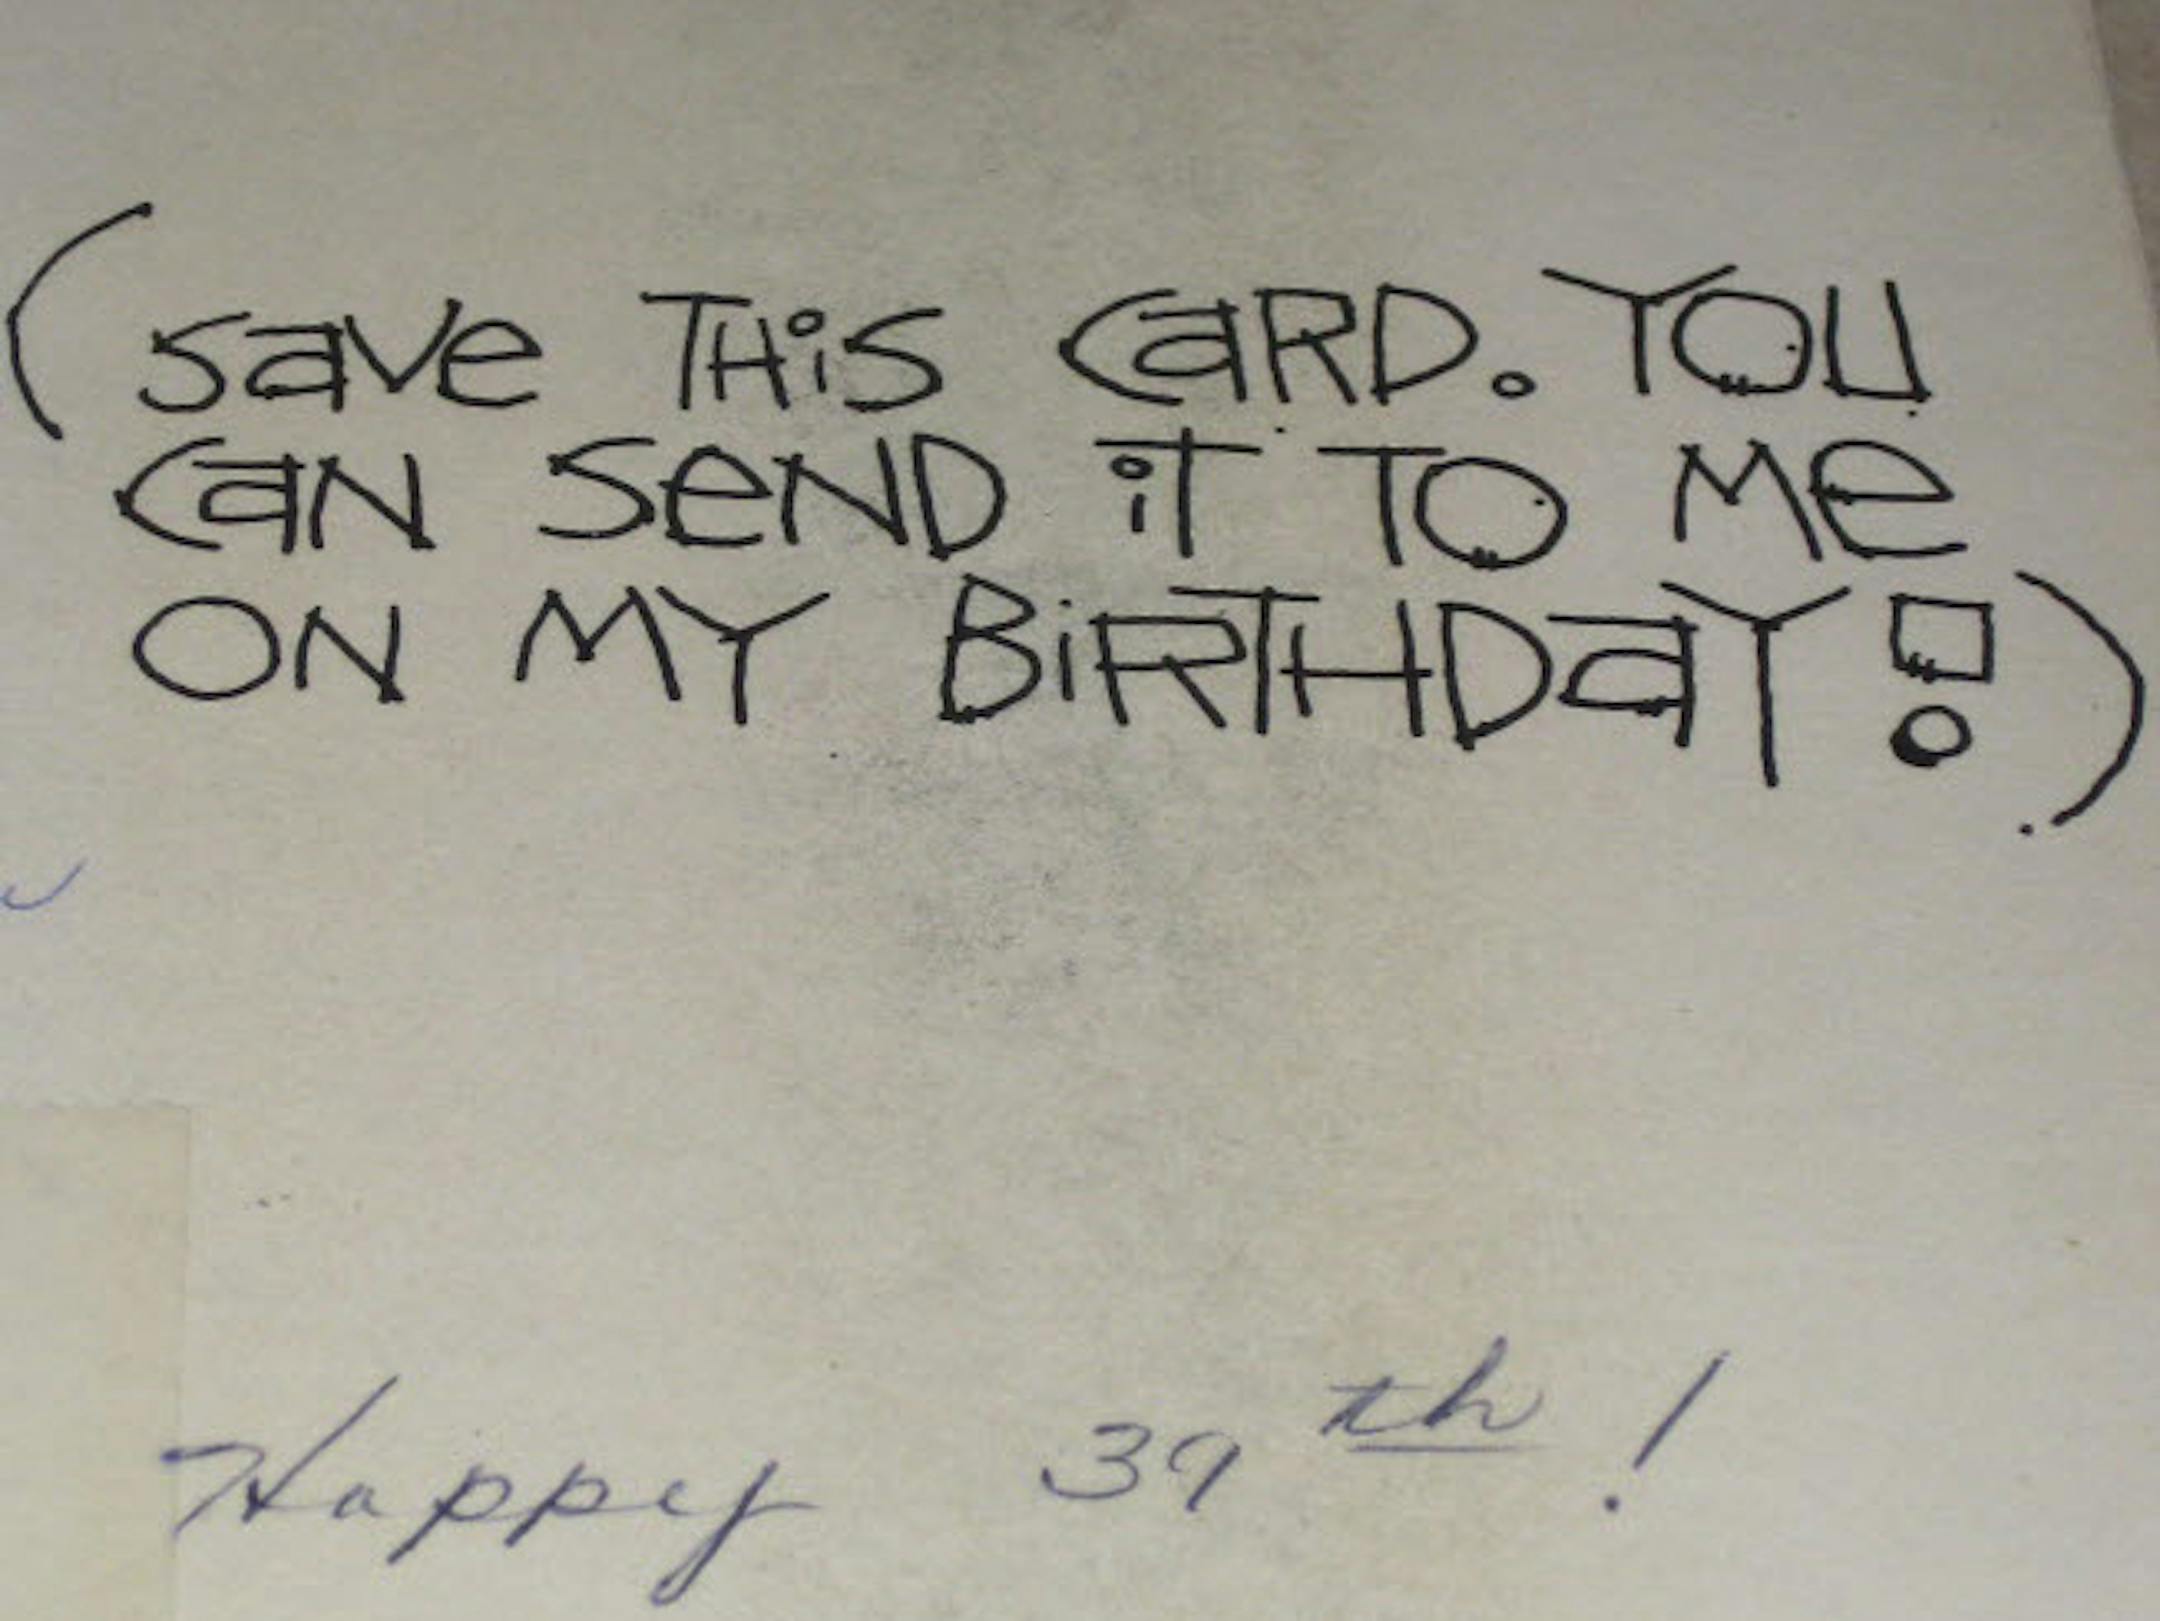 (SaVe THiS CaRD. YOU
CaN SeND iT TO Me
ON MY BiRTHDaY!)
Happy 39th!